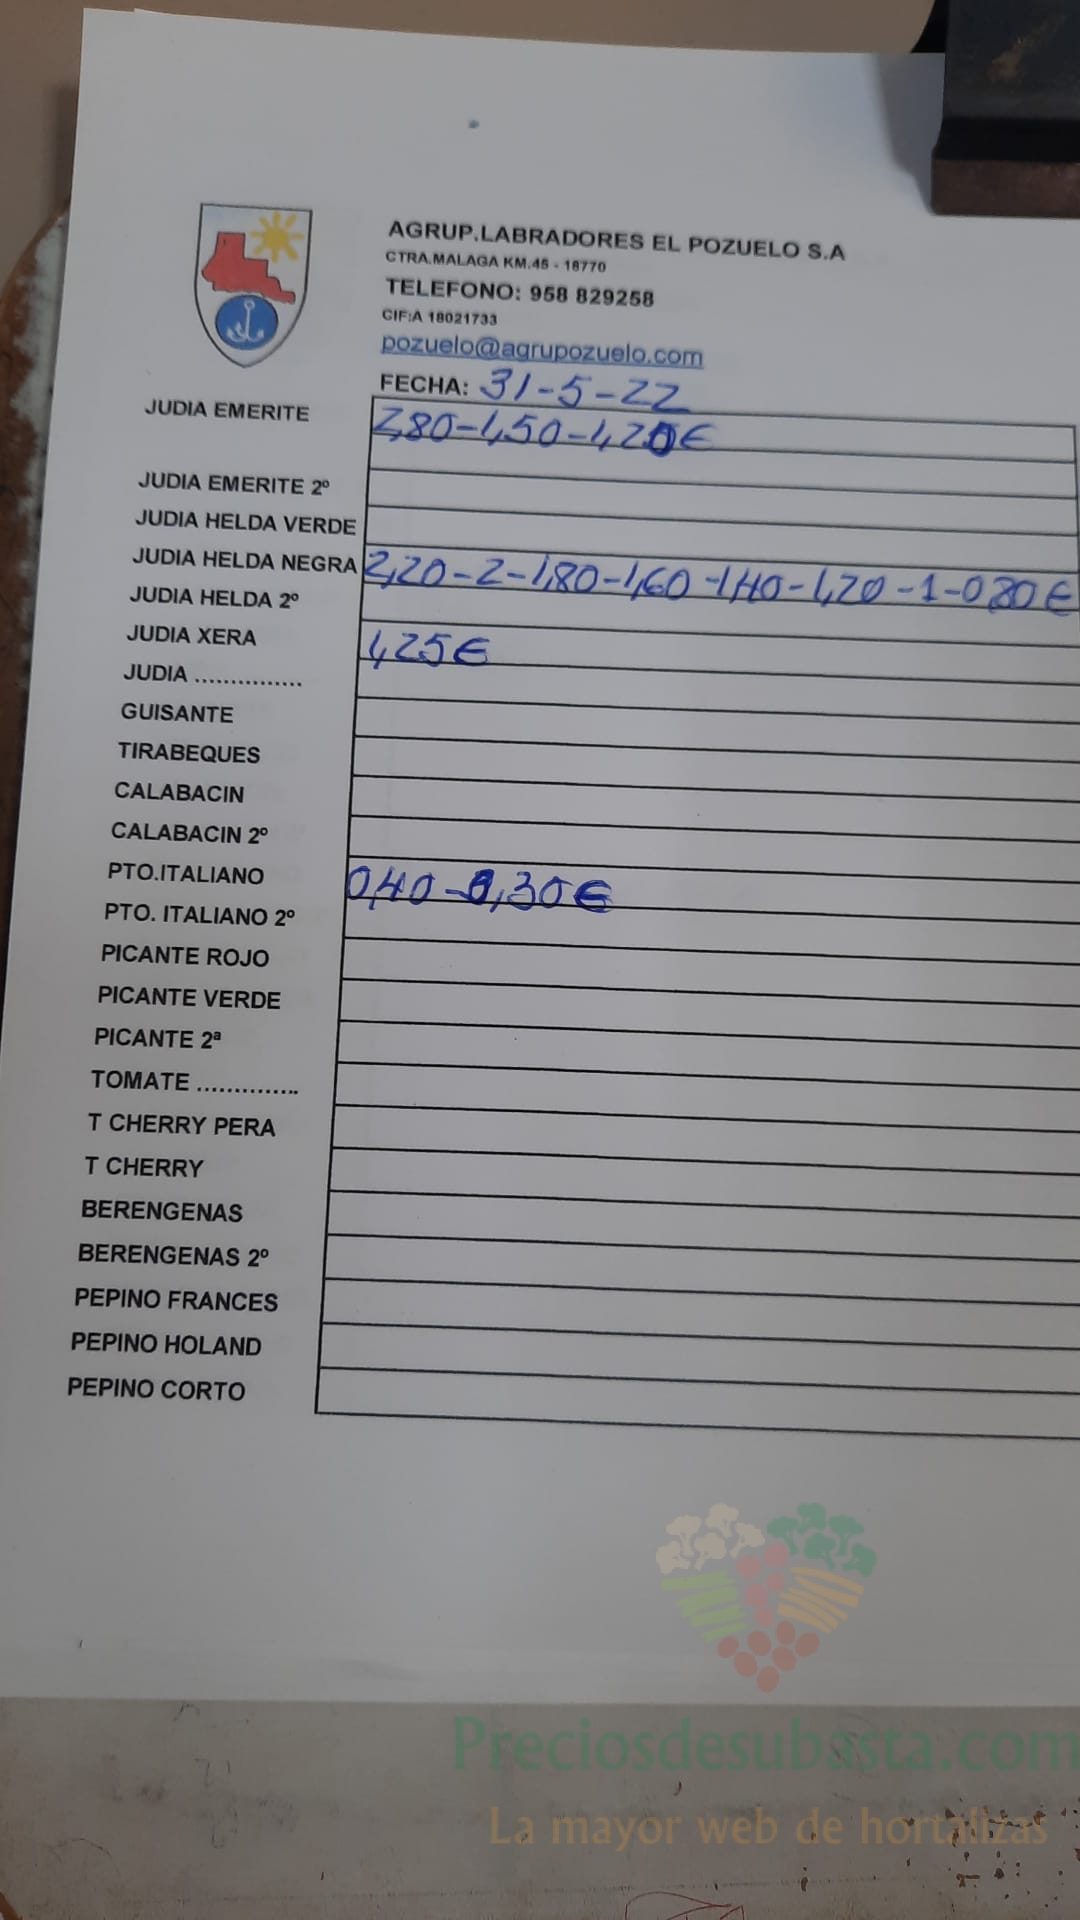 AGRUP.LABRADORES EL POZUELO S.A
CTRA.MALAGA KM.45 - 18770
TELEFONO: 958 829258
CIF:A 18021733
pozuelo@agrupozuelo.com
FECHA: 31-5-22
JUDIA EMERITE 2,80-1,50-1,20€
JUDIA EMERITE 2º
JUDIA HELDA VERDE
JUDIA HELDA NEGRA 2,20-2-1,80-1,60-1,40-1,20-1-0,80€
JUDIA HELDA 2º
JUDIA XERA 1,25€
JUDIA ...............
GUISANTE
TIRABEQUES
CALABACIN
CALABACIN 2º
PTO.ITALIANO 0,40-0,30€
PTO. ITALIANO 2º
PICANTE ROJO
PICANTE VERDE
PICANTE 2ª
TOMATE ..............
T CHERRY PERA
T CHERRY
BERENGENAS
BERENGENAS 2º
PEPINO FRANCES
PEPINO HOLAND
PEPINO CORTO
Preciosdesubasta.com
La mayor web de hortalizas